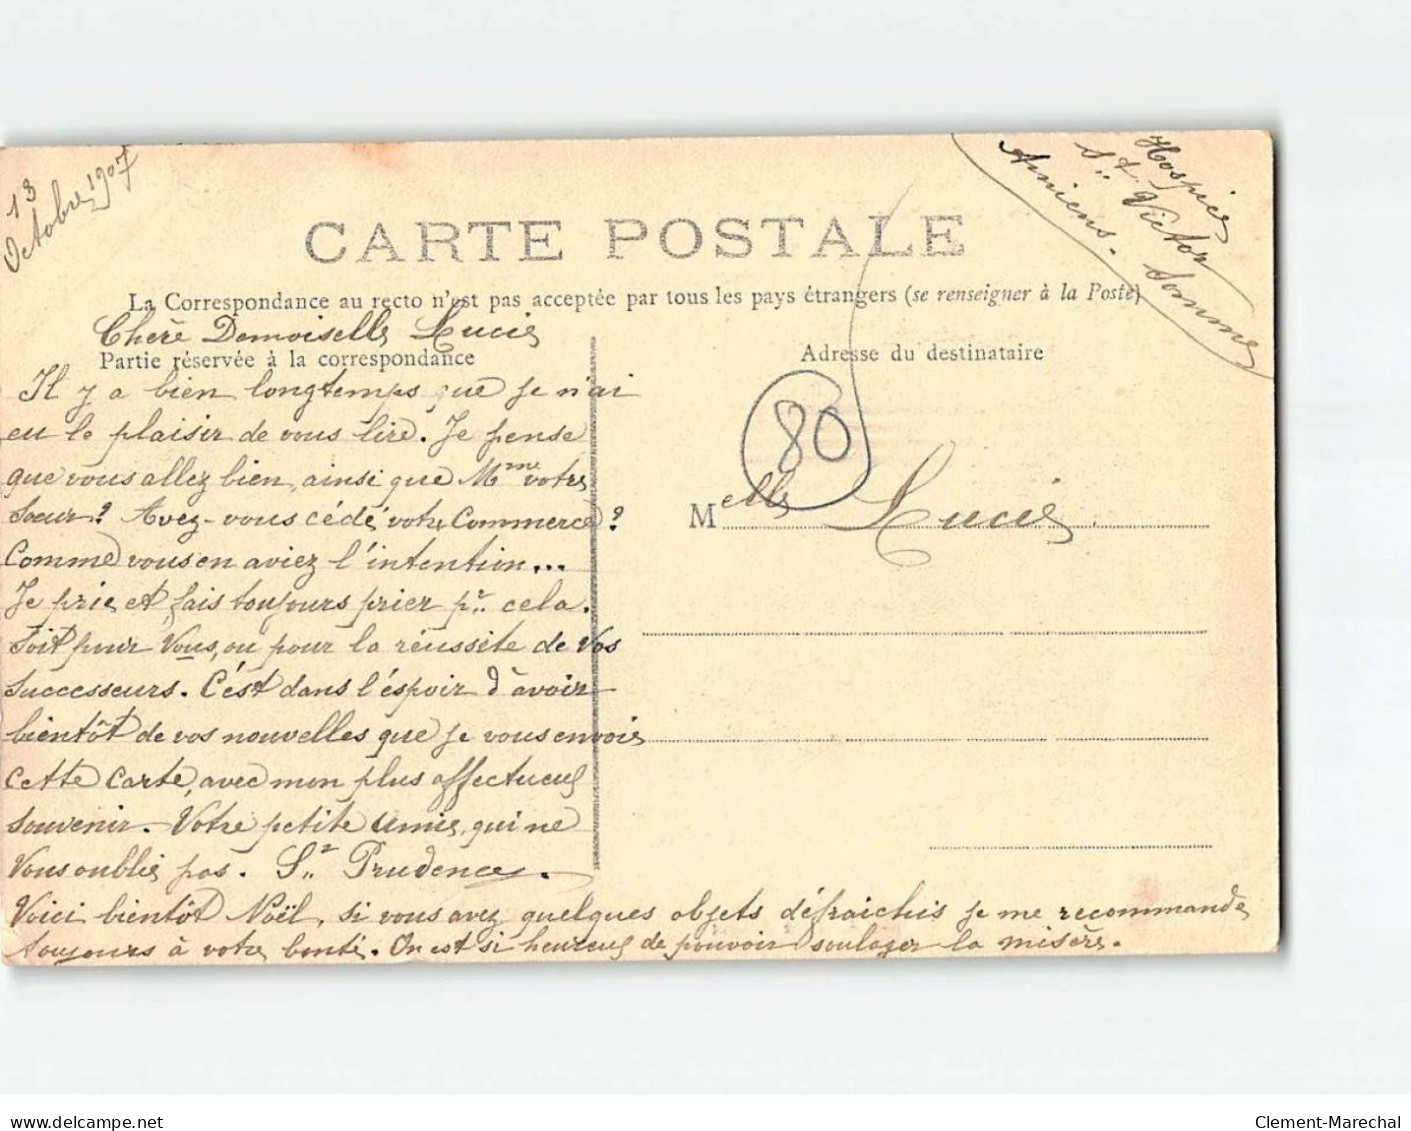 13
Octobre 1907
Hospice
St. Victor
Amiens. Somme
CARTE POSTALE
La Correspondance au recto n'est pas acceptée par tous les pays étrangers (se renseigner à la Poste)
Chère Demoiselle Lucie
Partie réservée à la correspondance
Il y a bien longtemps que je n'ai
eu le plaisir de vous lire. Je pense
que vous allez bien, ainsi que Mme votre
Soeur? Avez-vous cédé votre Commerce?
Comme vous en aviez l'intention...
Je prie et fais toujours prier pr cela.
Soit pour Vous, ou pour la réussite de Vos
Successeurs. C'est dans l'espoir d'avoir
bientôt de vos nouvelles que je vous envoie
cette Carte, avec mon plus affectueux
souvenir. Votre petite amie, qui ne
Vous oublie pas. Sr Prudence.
Voici bientôt Noël, si vous avez quelques objets défraichis je me recommande
toujours à votre bonté. On est si heureux de pouvoir soulager la misère.
Adresse du destinataire
80
Melle Lucie
www.delcampe.net
Clement-Marechal